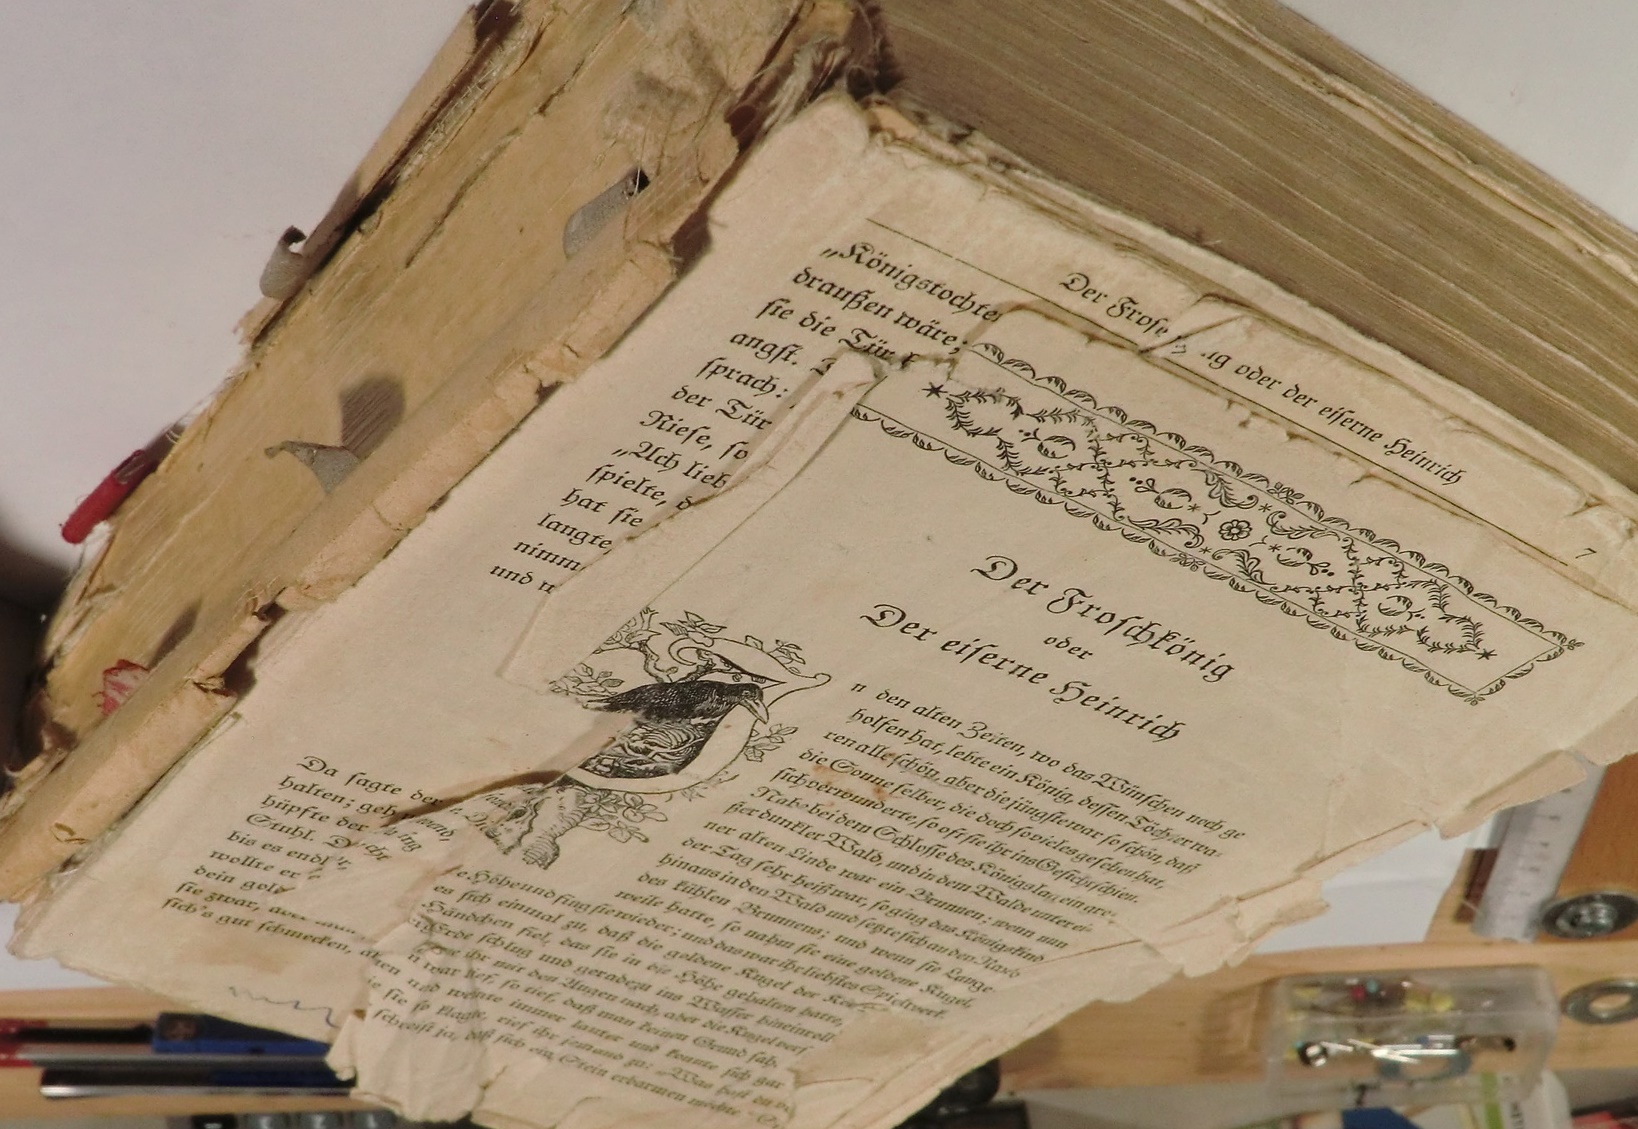 Der Frosc ig oder der eiserne Heinrich
7
„Königstochte
draußen wäre;
sie die Tür
angst.
sprach:
der Tür
Riese, so
„Ach lieb
spielte, d
hat sie
langte,
nimm
und n
Da sagte der
halten; geh
hüpfte der
Stuhl. D
bis es endl
wollte er
dein gol
sie zwar, aber
sich's gut schmecken, ab
Der Froschkönig
oder
Der eiserne Heinrich
n den alten Zeiten, wo das Wünschen noch ge
holfen hat, lebte ein König, dessen Töchter wa-
ren alle schön, aber die jüngste war so schön, daß
die Sonne selber, die doch so vieles gesehen hat,
sich verwunderte, so oft sie ihr ins Gesicht schien.
Nahe bei dem Schlosse des Königs lag ein gro-
ßer dunkler Wald, und in dem Walde unter ei-
ner alten Linde war ein Brunnen; wenn nun
der Tag sehr heiß war, so ging das Königskind
hinaus in den Wald und setzte sich an den Rand
des kühlen Brunnens; und wenn sie Lange-
weile hatte, so nahm sie eine goldene Kugel,
e Höhe und fing sie wieder; und das war ihr liebstes Spielwerk.
es sich einmal zu, daß die goldene Kugel der Kö
Händchen fiel, das sie in die Höhe gehalten hatte,
Erde schlug und geradezu ins Wasser hineinroll
ihr mit den Augen nach, aber die Kugel vers
war tief, so tief, daß man keinen Grund sah.
nd weinte immer lauter und konnte sich gar
ie sie so klagte, rief ihr jemand zu: „Was hast du vo
schreist ja, daß sich ein Stein erbarmen möchte.